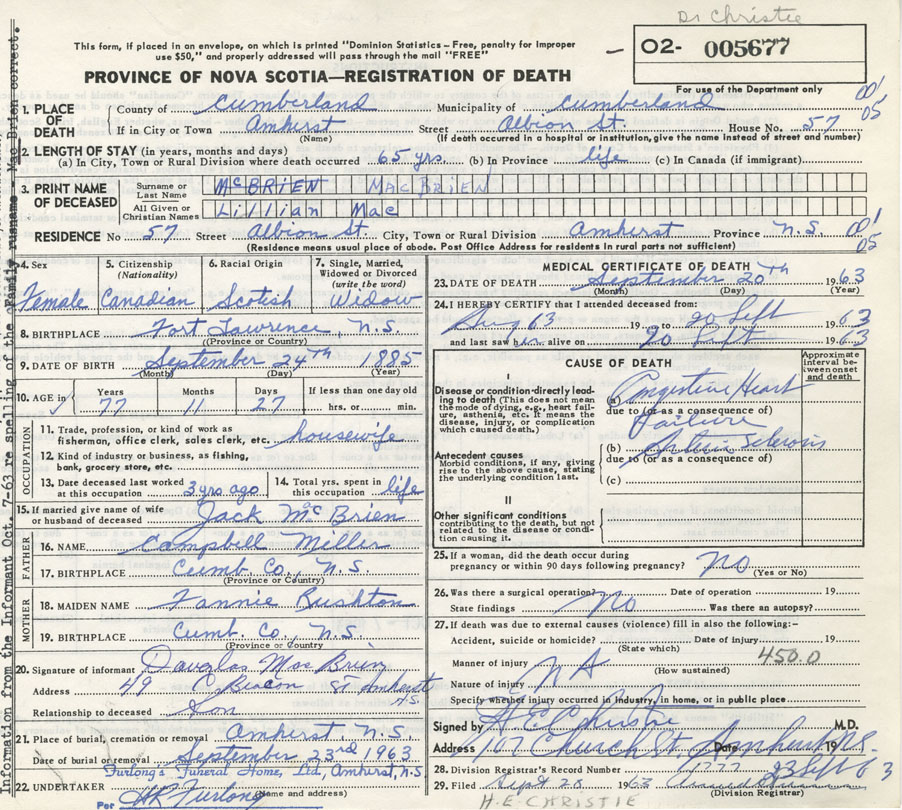 Dr Christie
This form, if placed in an envelope, on which is printed "Dominion Statistics – Free, penalty for improper
use $50," and properly addressed will pass through the mail "FREE"
O2- 005677
PROVINCE OF NOVA SCOTIA—REGISTRATION OF DEATH
For use of the Department only
1. PLACE OF DEATH County of Cumberland Municipality of Cumberland 001
If in City or Town Amherst Street Albion St. House No. 57 05
(Name) (If death occurred in a hospital or institution, give the name instead of street and number)
2. LENGTH OF STAY (in years, months and days)
(a) In City, Town or Rural Division where death occurred 65 yrs. (b) In Province life (c) In Canada (if immigrant)
3. PRINT NAME OF DECEASED Surname or Last Name McBRIEN MacBRIEN
All Given or Christian Names Lillian Mac
RESIDENCE No 57 Street Albion St. City, Town or Rural Division Amherst Province N.S. 001
(Residence means usual place of abode. Post Office Address for residents in rural parts not sufficient) 05
4. Sex 5. Citizenship (Nationality) 6. Racial Origin 7. Single, Married, Widowed or Divorced (write the word)
Female Canadian Scotish Widow
8. BIRTHPLACE Fort Lawrence, N.S.
(Province or Country)
9. DATE OF BIRTH September 24TH 1885
(Month) (Day) (Year)
10. AGE in Years Months Days If less than one day old
77 11 27 hrs. or min.
OCCUPATION
11. Trade, profession, or kind of work as
fisherman, office clerk, sales clerk, etc. housewife
12. Kind of industry or business, as fishing,
bank, grocery store, etc.
13. Date deceased last worked at this occupation 3 yrs ago 14. Total yrs. spent in this occupation life
15. If married give name of wife or husband of deceased Jack McBrien
FATHER
16. NAME Campbill Miller
17. BIRTHPLACE Cumb Co., N.S.
(Province or Country)
MOTHER
18. MAIDEN NAME Fannie Rushton
19. BIRTHPLACE Cumb. Co., N.S.
(Province or Country)
20. Signature of informant Douglas MacBrien
Address 49 C Beacon St Amherst N.S.
Relationship to deceased Son
21. Place of burial, cremation or removal Amherst, N.S.
Date of burial or removal September 23rd 1963
Furlong's Funeral Home, Ltd, Amherst, N.S.
22. UNDERTAKER (Name and address)
Per Furlong
MEDICAL CERTIFICATE OF DEATH
23. DATE OF DEATH September 20TH 1963
(Month) (Day) (Year)
24. I HEREBY CERTIFY that I attended deceased from:
Aug 63 19 to 20 Sept 1963
and last saw her alive on 20 Sept 1963
CAUSE OF DEATH
Approximate interval between onset and death
I
Disease or condition directly leading to death (This does not mean the mode of dying, e.g., heart failure, asthenia, etc. It means the disease, injury, or complication which caused death.)
(a) Congestive Heart
due to (or as a consequence of)
Failure
Antecedent causes
Morbid conditions, if any, giving rise to the above cause, stating the underlying condition last.
(b) Arterio Sclerosis
due to (or as a consequence of)
(c)
II
Other significant conditions
contributing to the death, but not related to the disease or condition causing it.
25. If a woman, did the death occur during
pregnancy or within 90 days following pregnancy? NO
(Yes or No)
26. Was there a surgical operation? NO Date of operation 19
State findings Was there an autopsy?
27. If death was due to external causes (violence) fill in also the following:–
Accident, suicide or homicide? Date of injury 19
(State which) 450.0
Manner of injury NA
(How sustained)
Nature of injury
Specify whether injury occurred in industry, in home, or in public place
Signed by H E Christie M.D.
Address 107 Church St. Amherst N.S. Date 19
23 Sept 63
28. Division Registrar's Record Number
29. Filed Sept 28 1963
(Division Registrar)
H.E. CHRISTIE
Information from the Informant Oct. 7-63 re spelling of the family surname - MacBrien correct.